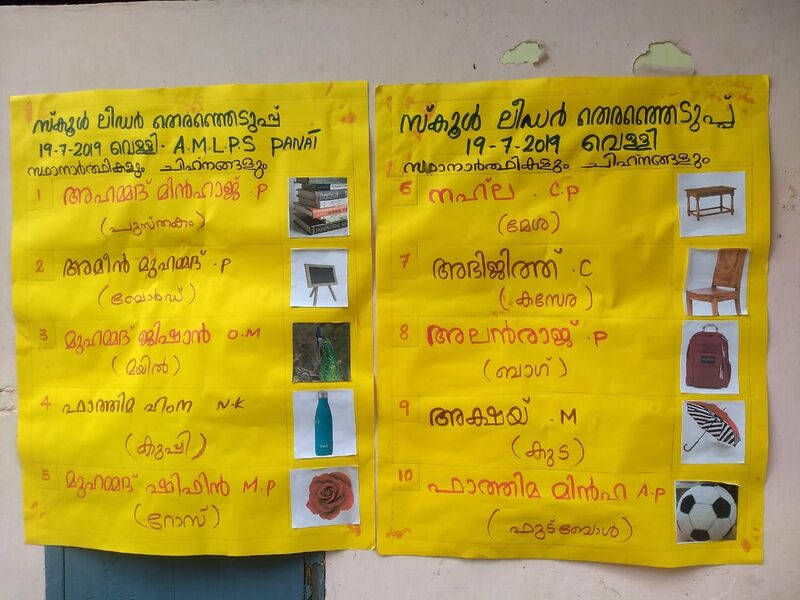 സ്കൂൾ ലീഡർ തെരഞ്ഞെടുപ്പ്
19-7-2019 വെള്ളി. A.M.L.P.S PANAI
സ്ഥാനാർത്ഥികളും ചിഹ്നങ്ങളും
1 അഹമ്മദ് മിൻഹാജ് .P
(പുസ്തകം)
2 അമീൻ മുഹമ്മദ് .P
(ബോർഡ്)
3 മുഹമ്മദ് ജിഷാൻ O.M
(മയിൽ)
4 ഫാത്തിമ ഹിംന N.K
(കുപ്പി)
5 മുഹമ്മദ് ഷിഫിൻ M.P
(റോസ്)
സ്കൂൾ ലീഡർ തെരഞ്ഞെടുപ്പ്
19-7-2019 വെള്ളി
സ്ഥാനാർത്ഥികളും ചിഹ്നങ്ങളും
6 നഹ്‌ല .C.P
(മേശ)
7 അഭിജിത്ത് .C
(കസേര)
8 അലൻരാജ് .P
(ബാഗ്)
9 അക്ഷയ് .M
(കുട)
10 ഫാത്തിമ മിൻഹ A.P
(ഫുട്ബോൾ)